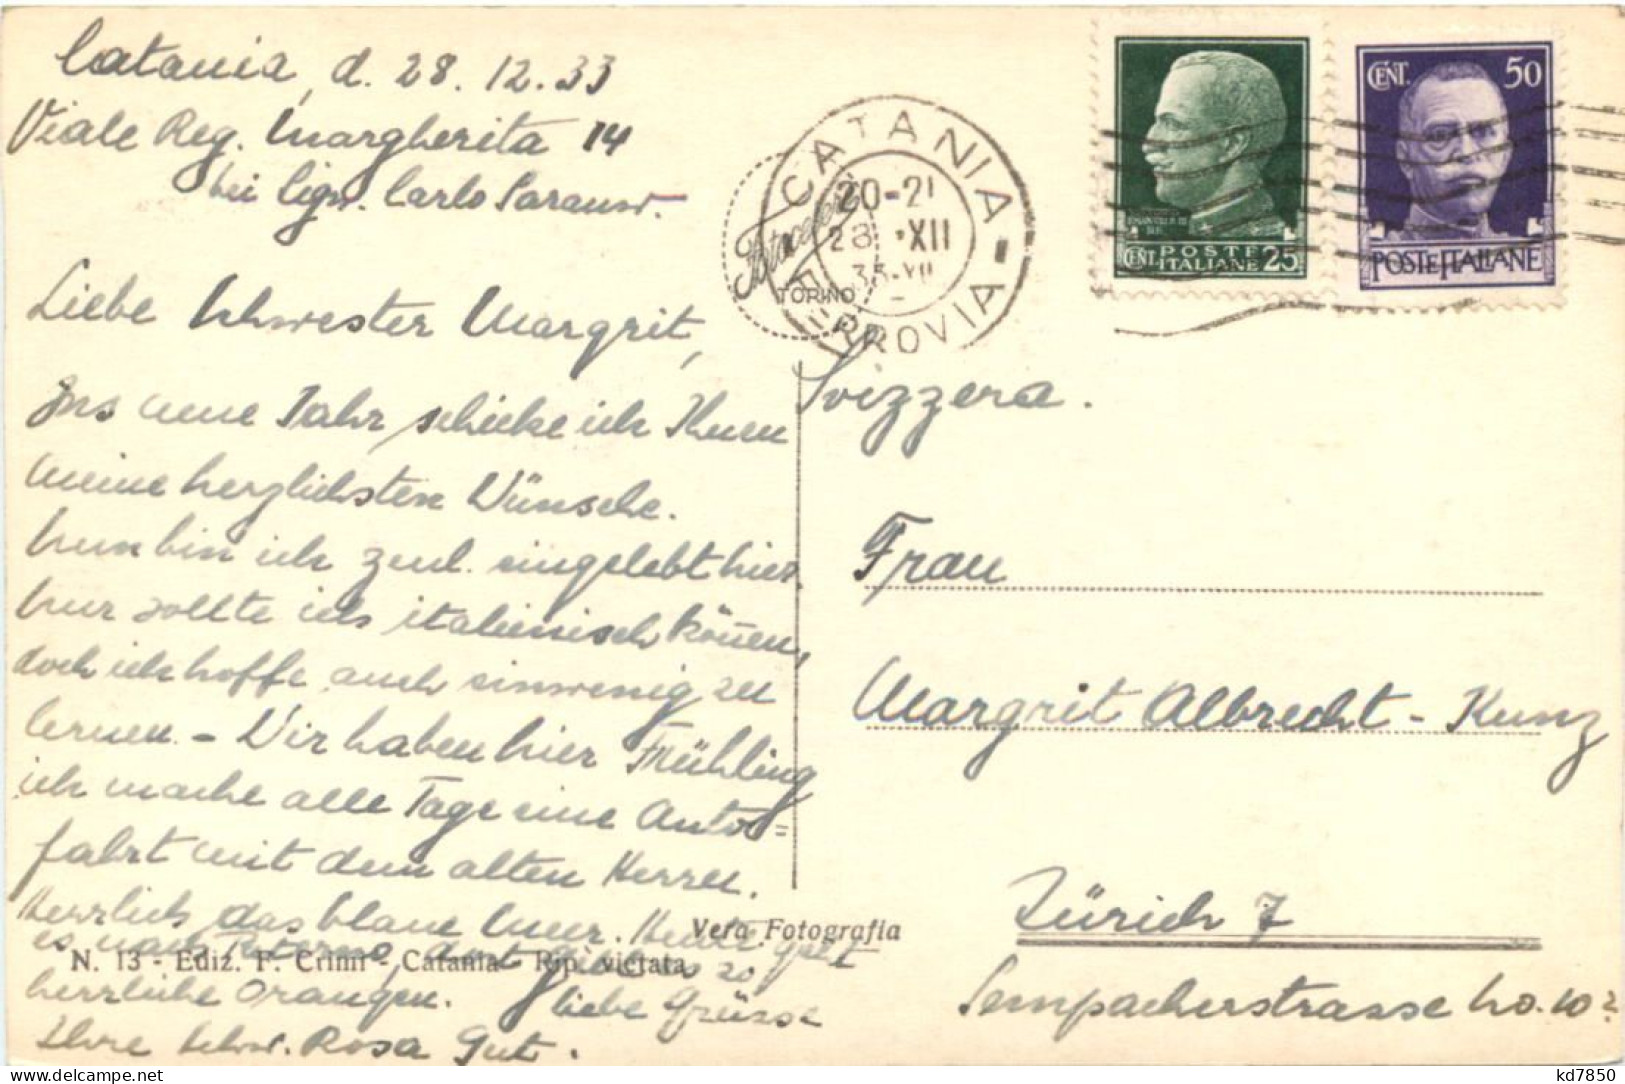 Catania, d. 28. 12. 33
Viale Reg. Margherita 14
bei Sign. Carlo
Liebe Schwester Margrit,
Ins neue Jahr schicke ich Ihnen
meine herzlichsten Wünsche.
Nun bin ich ziml. eingelebt hier.
Nur sollte ich italienisch können,
doch ich hoffe auch ein wenig zu
lernen. – Wir haben hier Frühling
ich mache alle Tage eine Auto=
fahrt mit dem alten Herren.
Herrlich das blaue Meer. Heute geht
es nach dort gibt es so
herrliche Orangen. liebe Grüsse
Ihre Schw. Rosa Gut.
N. 13 - Ediz. F. Crimi - Catania - Rip. vietata
Vera Fotografia
CATANIA - FERROVIA -
20-21
28 · XII
TORINO
CENT. POSTE ITALIANE 25
CENT. 50
POSTE ITALIANE
Svizzera.
Frau
Margrit Albrecht - Kunz
Zürich 7
Sempacherstrasse No.
kd7850